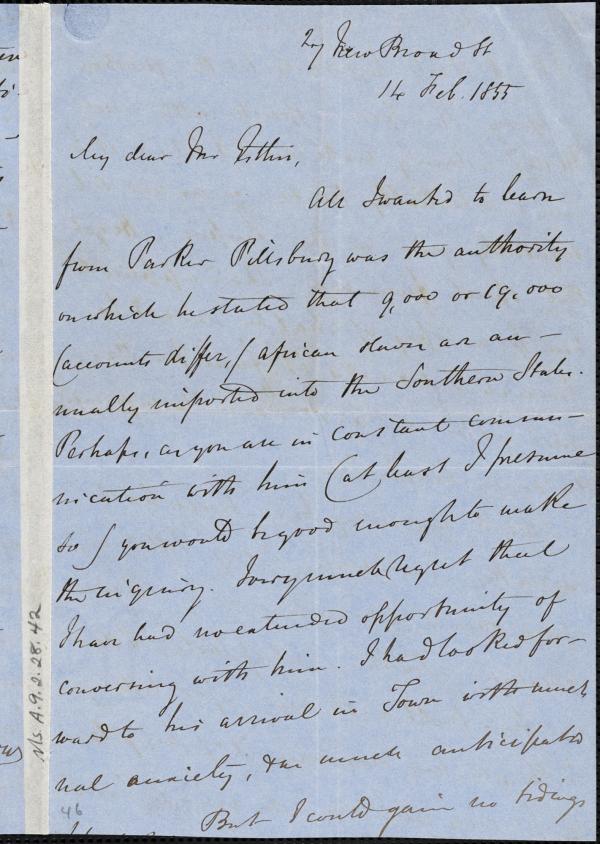 27 New Broad St
14 Feb. 1855
My dear Mr Estlin,
All I wanted to learn
from Parker Pillsbury was the authority
on which he stated that 9,000 or 19,000
(accounts differ,) african slaves are an-
nually imported into the Southern States.
Perhaps, as you are in constant commu-
nication with him (at least I presume
so) you would be good enough to make
the inquiry. I very much regret that
I have had no extended opportunity of
conversing with him. I had looked for-
ward to his arrival in Town with much
anxiety, & much anticipated
But I could gain no tidings
Ms. A.9.2.28.42
46